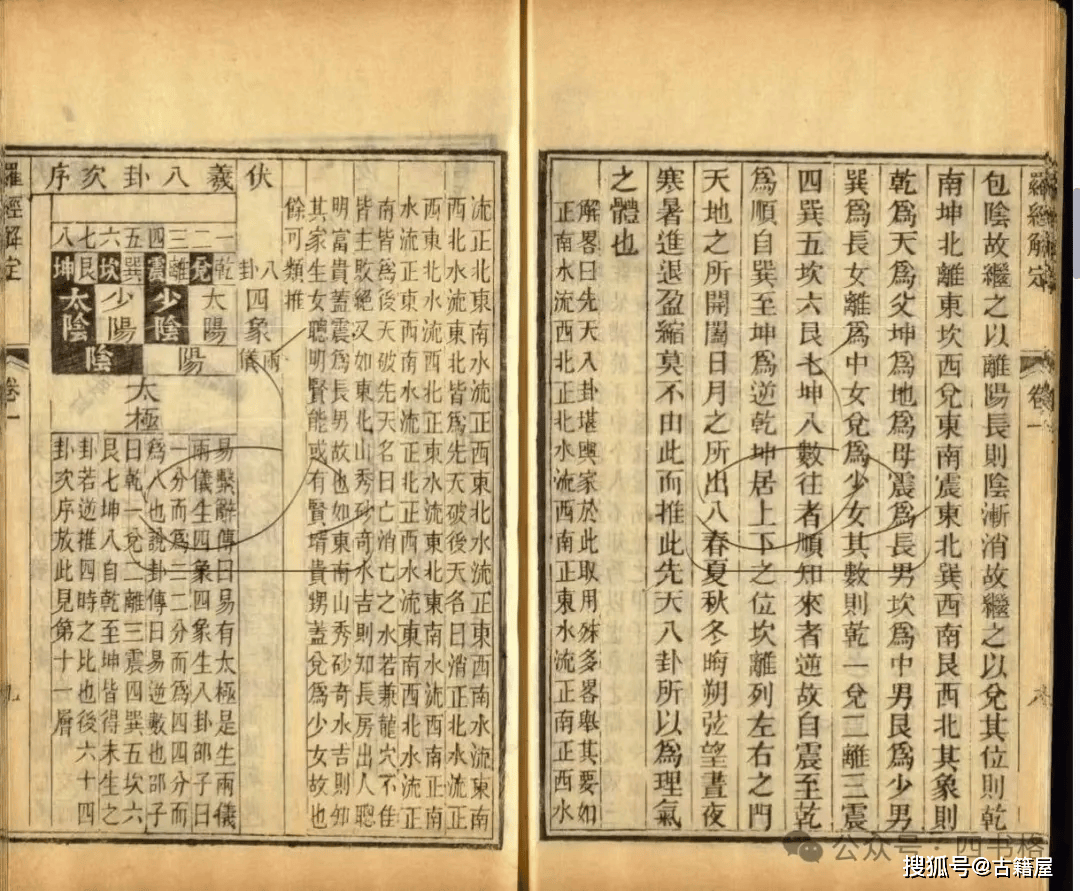 羅經解定
卷一
包陰故繼之以離陽長則陰漸消故繼之以兌其位則乾
南坤北離東坎西兌東南震東北巽西南艮西北其象則
乾爲天爲父坤爲地爲母震爲長男坎爲中男艮爲少男
巽爲長女離爲中女兌爲少女其數則乾一兌二離三震
四巽五坎六艮七坤八數往者順知來者逆故自震至乾
爲順自巽至坤爲逆乾坤居上下之位坎離列左右之門
天地之所開闔日月之所出入春夏秋冬晦朔弦望晝夜
寒暑進退盈縮莫不由此而推此先天八卦所以爲理氣
之體也
解畧曰先天八卦堪輿家於此取用殊多畧舉其要如
正南水流西北正北水流西南正東水流正南正西水
流正北東南水流正西東北水流正東西南水流東南
西北水流東北皆爲先天破後天名曰消正北水流正
西東北水流西北正東水流東北東南水流西南正南
水流正東西南水流正北正西水流東南西北水流正
南皆爲後天破先天名曰亡消亡之水若兼龍穴不佳
皆主敗絕又如東北山秀砂奇水吉則知長房出人聰
明富貴蓋震爲長男故也如東南山秀砂奇水吉則知
其家生女聰明賢能或有賢壻貴甥蓋兌爲少女故也
餘可類推
伏羲八卦次序
一二三四五六七八
八卦
乾兌離震巽坎艮坤
四象
太陽
少陰
少陽
太陰
兩儀
陽
陰
太極
易繫辭傳曰易有太極是生兩儀
兩儀生四象四象生八卦邵子曰
一分而爲二二分而爲四四分而
爲八也說卦傳曰易逆數也邵子
曰乾一兌二離三震四巽五坎六
艮七坤八自乾至坤皆得未生之
卦若逆推四時之比也後六十四
卦次序放此見第十一層
羅經解定
卷一
九
公众号·四书格
搜狐号@古籍屋